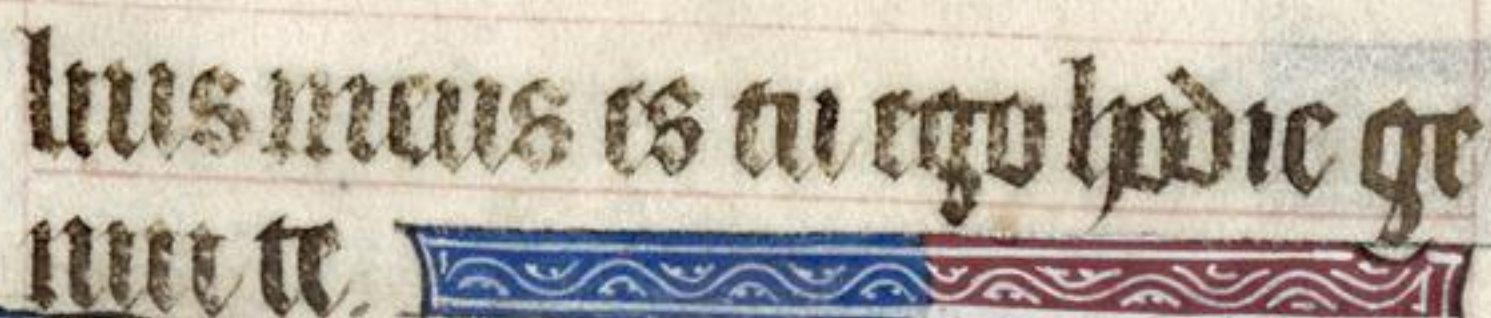 lius meus es tu ego hodie ge
nui te.